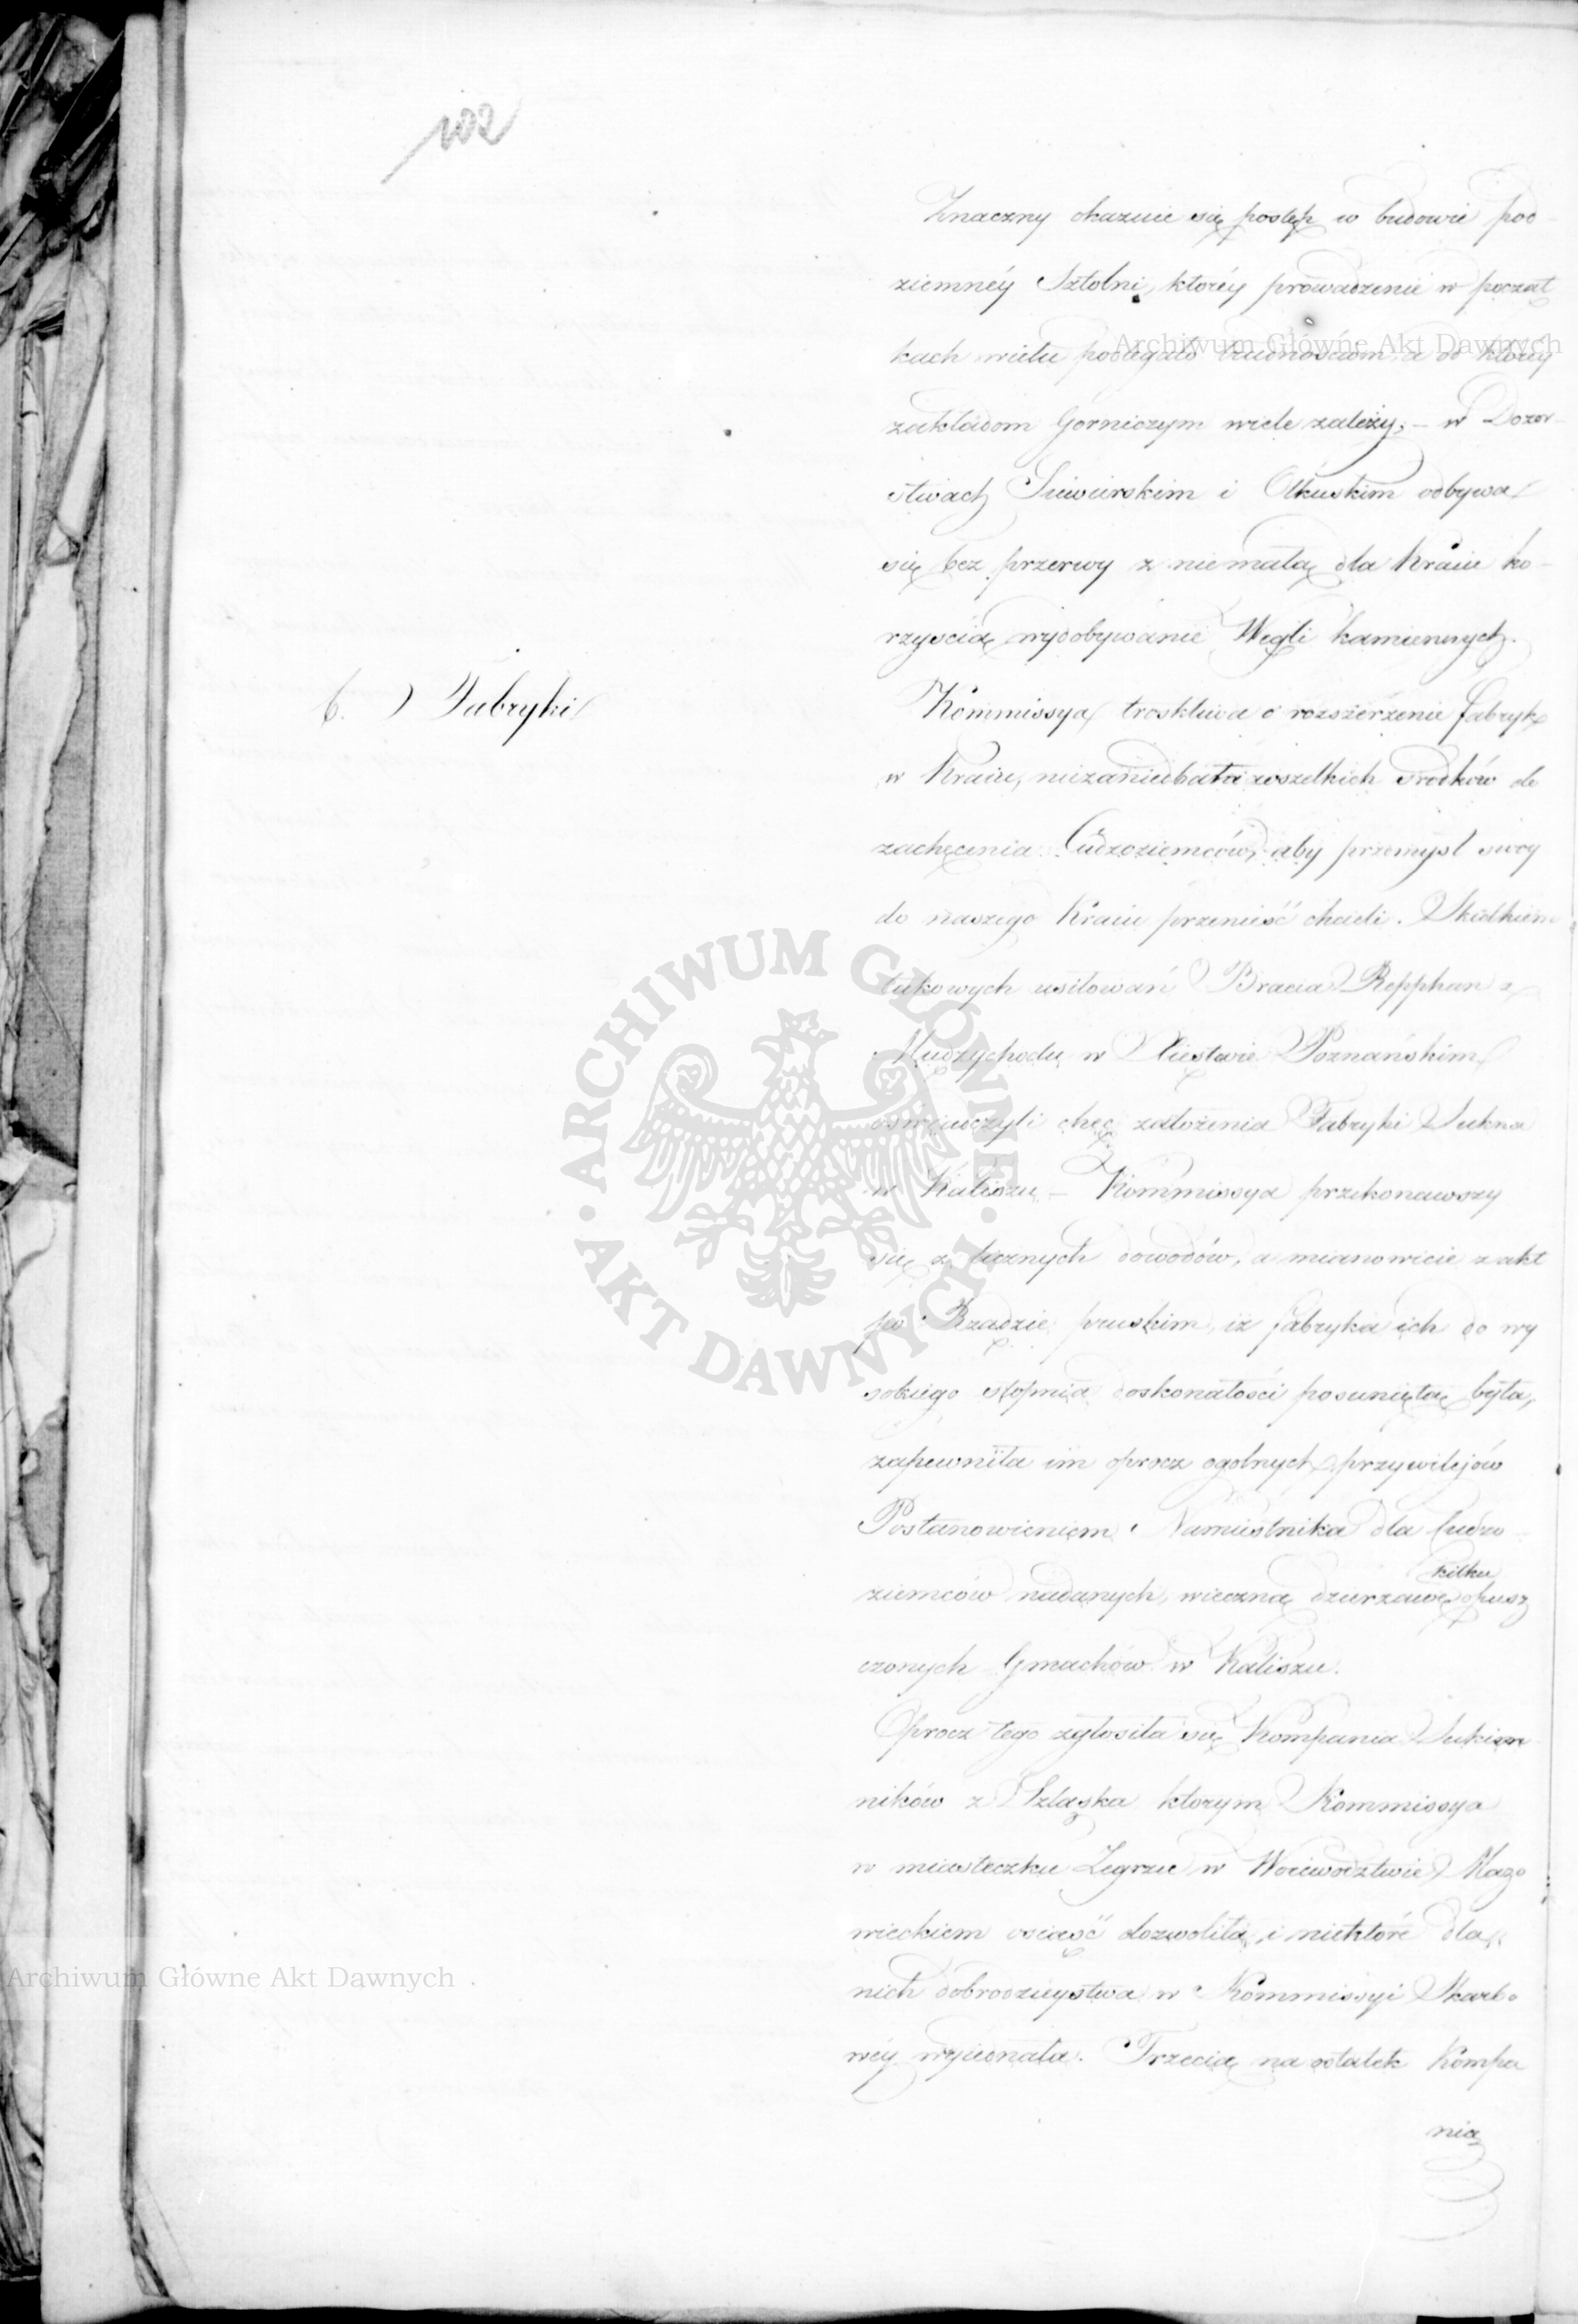 102
Znaczny okazuie się postęp w budowie pod-
ziemnéy Sztolni, któréy prowadzenie w począt
kach wielu podlegało trudnościom, a od któréy
zakładom Gorniczym wiele zależy; – w Dozor-
stwach Siewierskim i Olkuskim odbywa
się bez przerwy z niemałą dla Kraiu ko-
rzyścią wydobywanie Węgli kamiennych.
6.) Fabryki
Kommissya troskliwa o rozszerzenie fabryk
w Kraiu, niezaniedbała wszelkich srodków do
zachęcenia Cudzoziemców, aby przemysł swoy
do naszego Kraiu przenieść chcieli. Skutkiem
takowych usiłowań Bracia Repphan z
Międzychodu w Xięstwie Poznańskim
oświadczyli chęć założenia Fabryki Sukna
w Kaliszu – Kommissya przekonawszy
się z licznych dowodów, a mianowicie z akt
po Rządzie pruskim, iż fabryka ich do wy
sokiego stopnia doskonałości posuniętą była,
zapewniła im oprocz ogolnych przywilejów
Postanowieniem Namiestnika dla Cudzo-
ziemców nadanych, wieczną dzierzawę kilku opusz
czonych Gmachów w Kaliszu.
Oprocz tego zgłosiła się Kompania Sukien-
ników z Szląska ktorym Kommissya
w miasteczku Zegrzu w Woiewodztwie Mazo
wieckiem osiąść dozwoliła, i niektóre dla
nich dobrodzieystwa w Kommissyi Skarbo
wéy wyiednała. Trzecia na ostatek Kompa
nia
Archiwum Główne Akt Dawnych
ARCHIWUM GŁÓWNE AKT DAWNYCH
Archiwum Główne Akt Dawnych